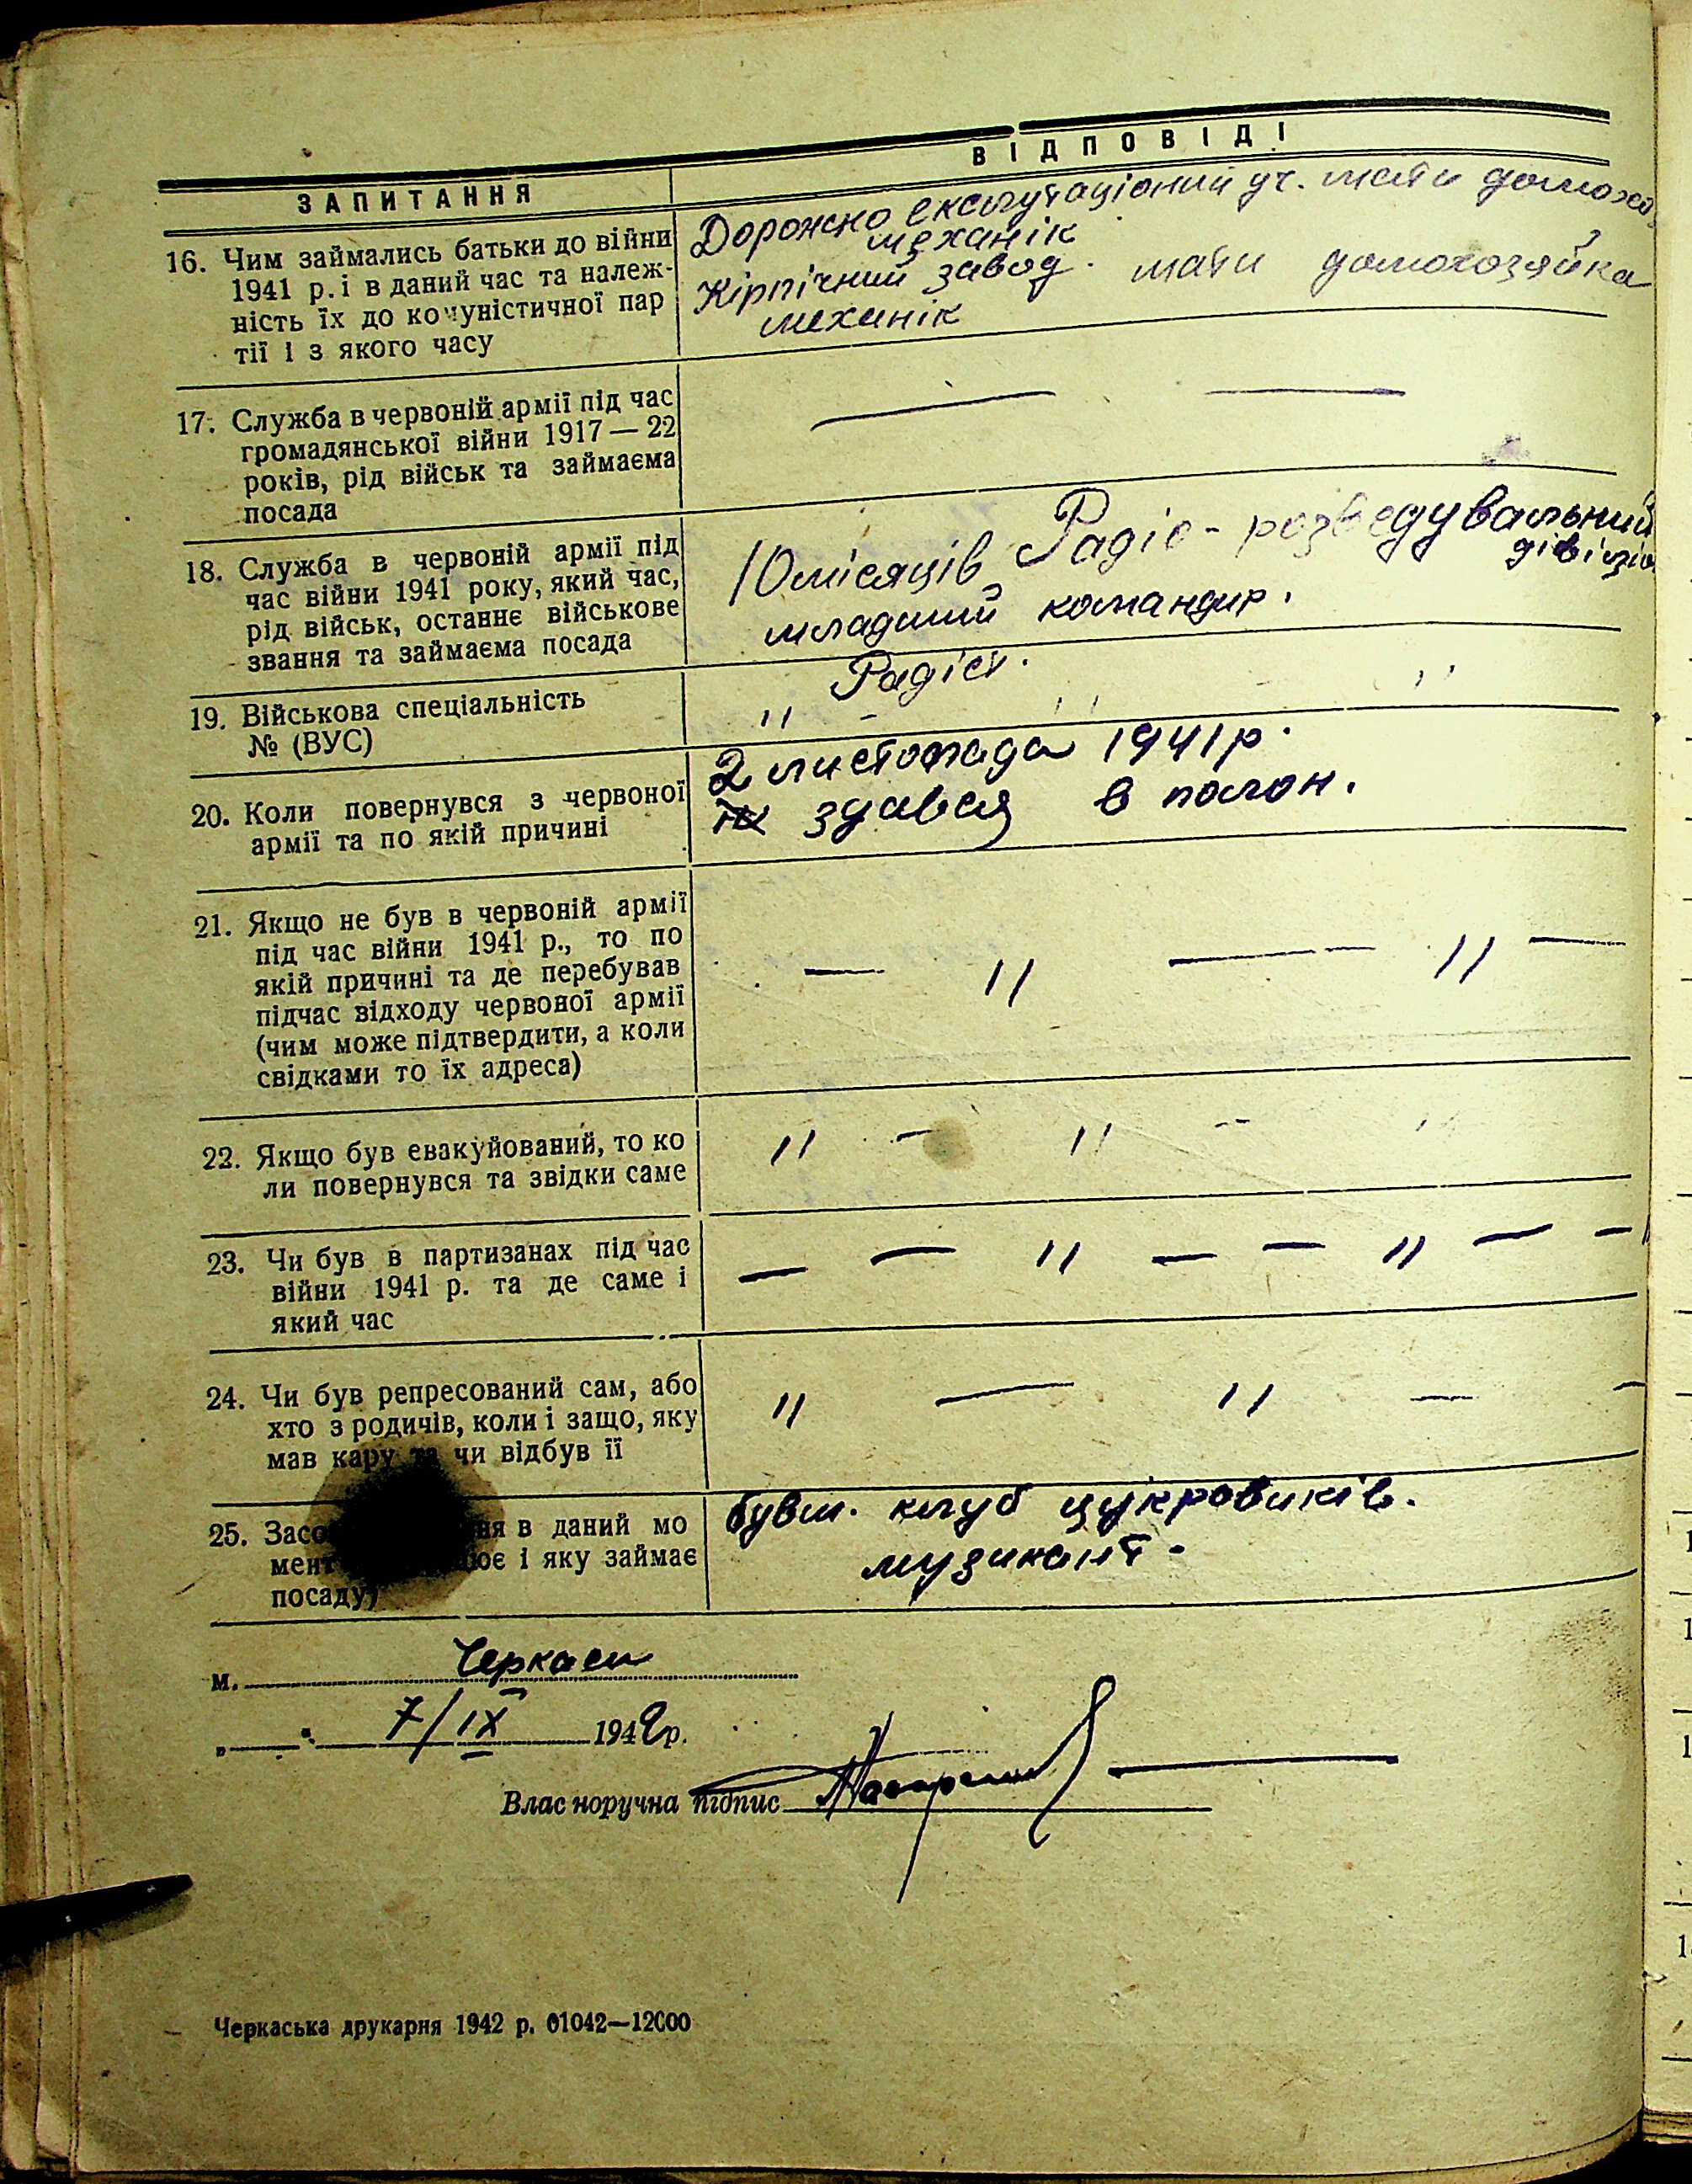 ЗАПИТАННЯ
ВІДПОВІДІ
16. Чим займались батьки до війни
1941 р. і в даний час та належ-
ність їх до комуністичної пар
тії і з якого часу
Дорожно експлутаціоний уч. мати домохо
механік
Кірпічний завод. мати домохозяйка
механік
17. Служба в червоній армії під час
громадянської війни 1917 — 22
років, рід військ та займаєма
посада
— —
18. Служба в червоній армії під
час війни 1941 року, який час,
рід військ, останнє військове
звання та займаєма посада
10 місяців Радіо-розведувальний
дівізіо
младший командир.
19. Військова спеціальність
№ (ВУС)
Радіст.
" — " "
20. Коли повернувся з червоної
армії та по якій причині
2 листопада 1941 р.
здався в полон.
21. Якщо не був в червоній армії
під час війни 1941 р., то по
якій причині та де перебував
підчас відходу червоної армії
(чим може підтвердити, а коли
свідками то їх адреса)
— " — — " —
22. Якщо був евакуйований, то ко
ли повернувся та звідки саме
" — " — "
23. Чи був в партизанах під час
війни 1941 р. та де саме і
який час
— — " — — " — —
24. Чи був репресований сам, або
хто з родичів, коли і защо, яку
мав кару та чи відбув її
" — " — —
25. Засо ня в даний мо
мент ює і яку займає
посаду)
бувш. клуб цукровиків.
музикант -
м. Черкаси
„ “ 7/IX 1942 р.
Влас норучна підпис
Черкаська друкарня 1942 р. 01042—12000